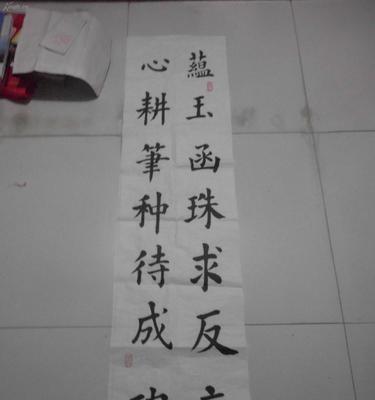 蘊玉函珠求反
心耕筆种待成